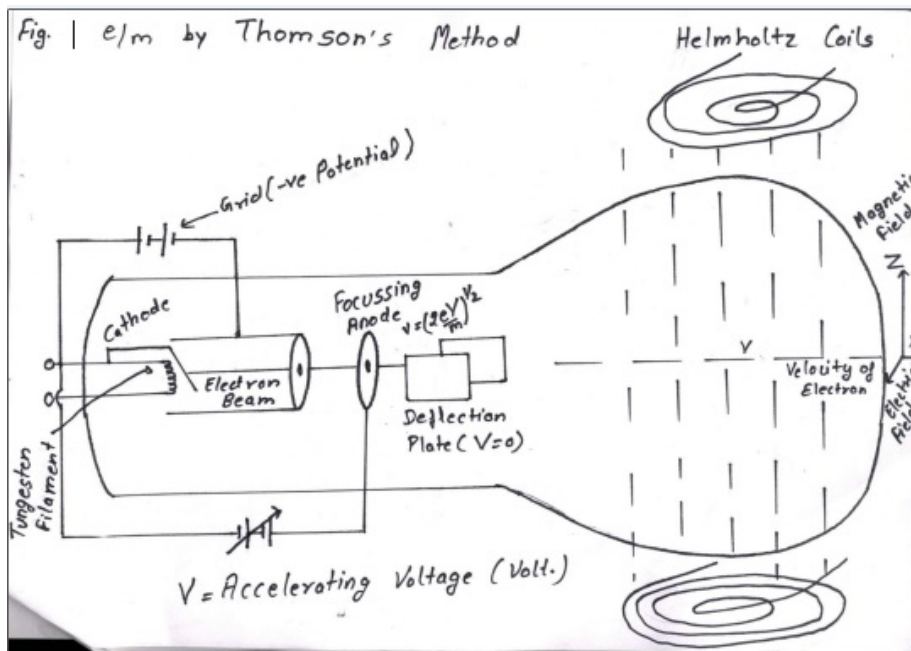 Fig. 1 e/m by Thomson's Method
Helmholtz Coils
Grid (-ve Potential)
Magnetic
Field
Z
Cathode
Focussing
Anode
v=(2eV/m)^1/2
Electron
Beam
Deflection
Plate (V=0)
V
Velocity of
Electron
Electric
Field
Tungesten
Filament
V = Accelerating Voltage (Volt.)